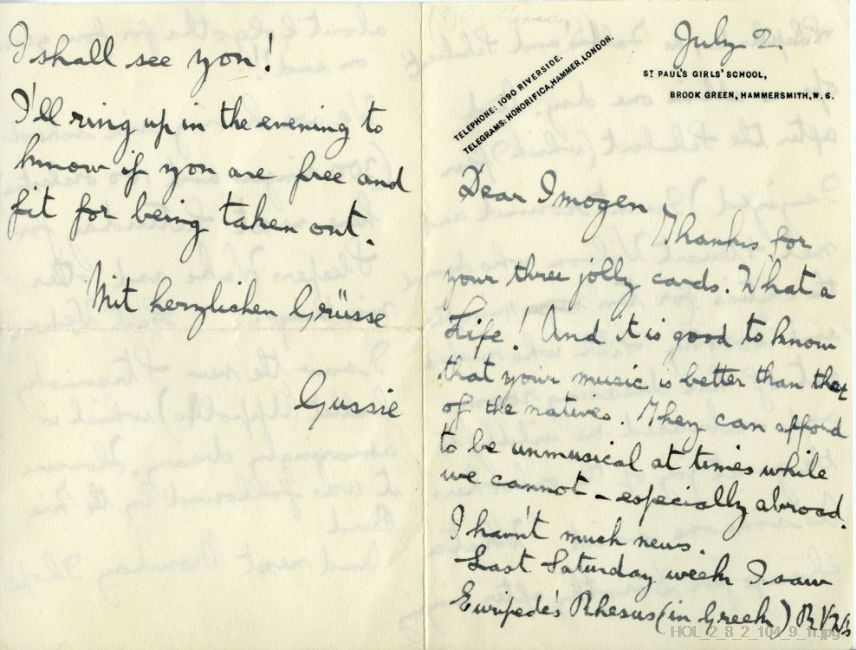 I shall see you!
I'll ring up in the evening to
know if you are free and
fit for being taken out.
Mit herzlichen Grüsse
Gussie
July 2.
TELEPHONE: 1090 RIVERSIDE.
TELEGRAMS: HONORIFICA, HAMMER, LONDON.
ST PAUL'S GIRLS' SCHOOL,
BROOK GREEN, HAMMERSMITH, W. 6.
Dear Imogen
Thanks for
your three jolly cards. What a
Life! And it is good to know
that your music is better than that
of the natives. They can afford
to be unmusical at times while
we cannot – especially abroad.
I havn't much news.
Last Saturday week I saw
Euripede's Rhesus (in Greek) RVW's
HOL_2_8_2_104_9_11.jpg